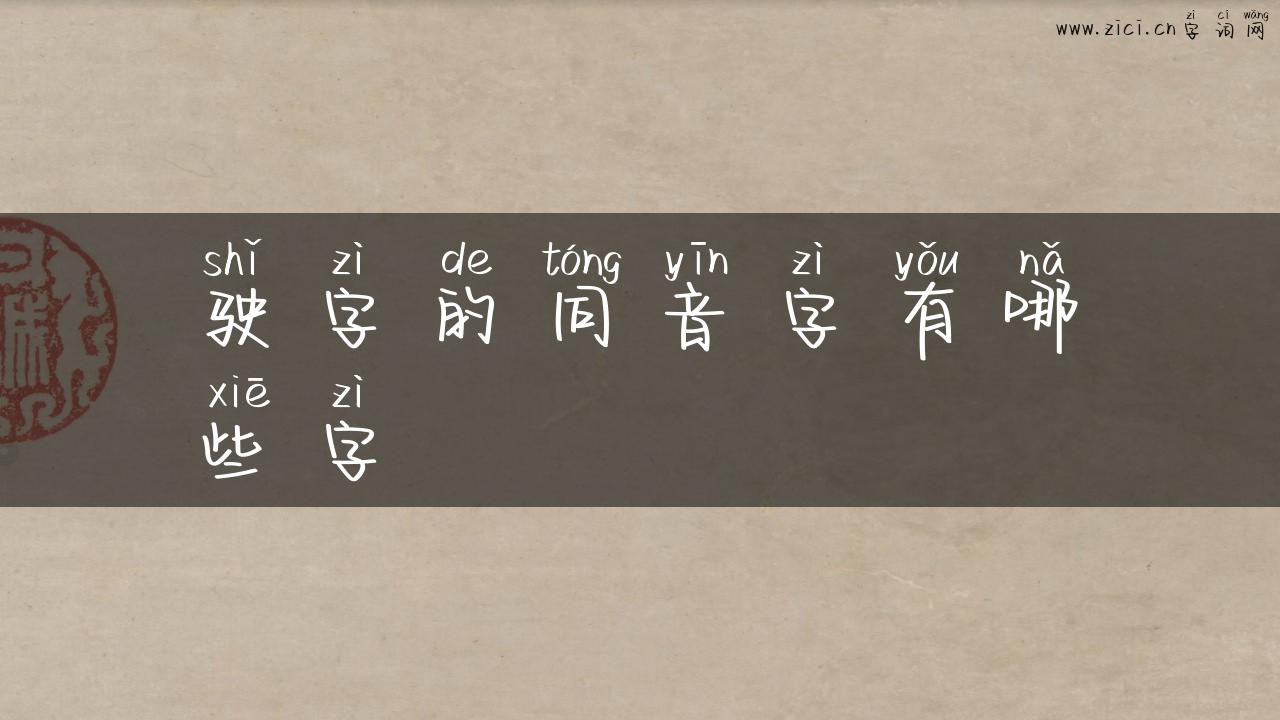 zì cí wǎng
www.zici.cn 字词网
shǐ zì de tóng yīn zì yǒu nǎ
驶字的同音字有哪
xiē zì
些字